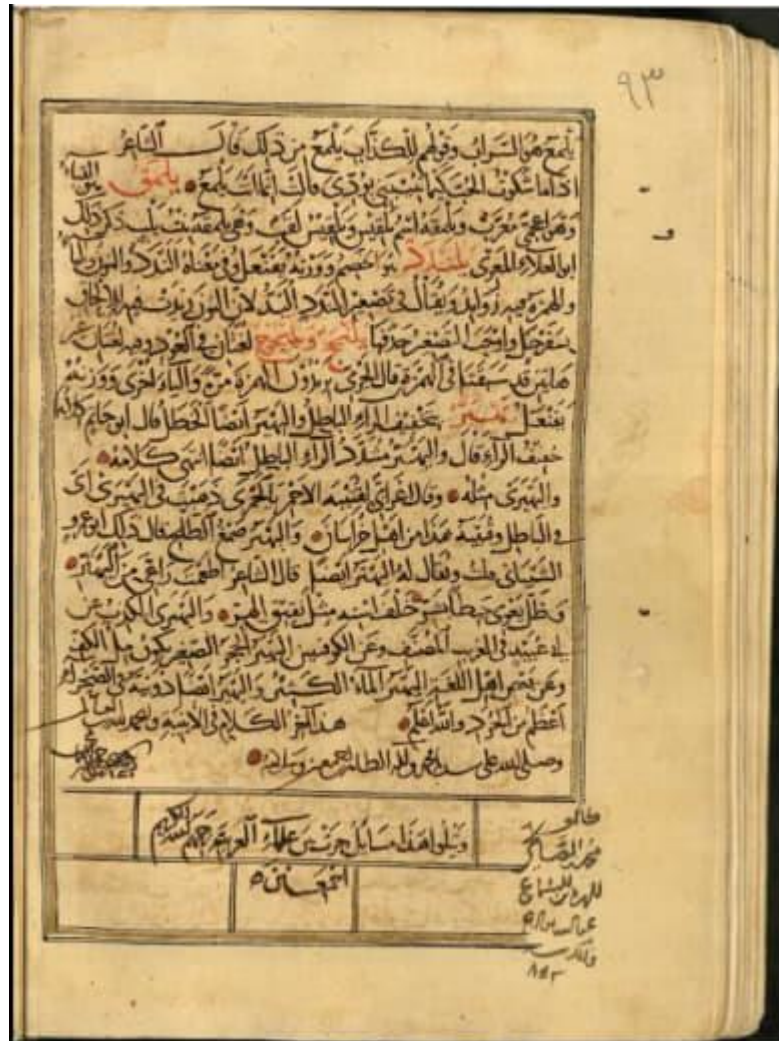 ٩٣
يلمع هو السراب وقولهم للكذاب يلمع من ذلك قال الشاعر
اذا ما شكوت الحب كيما تثيبني بودي قالت انما انت يلمع يلمق
وهو اعجمي معرب ويلمقه اسم بلقيس وبلقيس لقب وهي يلمقه بنت ذكر ذلك
ابو العلاء المعري يلندد هو الخصم ووزنه يفنعل وفي معناه الندد والنون
والهمزة فيه زوايد ويقال في تصغير النون زيدت فيه للالحاق
بسفرجل واوجب التصغير حذفها يلنجج ويلنجوج لغتان في العود وفيه لغتان غير
هاتين قد سبقتا في الهمزة قال الجرمي يزيدون الهمزة مرة والياء اخرى ووزنه
يفنعل يهير بتخفيف الراء الباطل واليهير ايضا الحنظل قال ابو حاتم
خفيف الراء قال واليهير مشدد الراء الباطل ايضا انتهى كلامه
واليهيرى مثله وقال اعرابي لقتيبه الاحمر ذهبت في اليهيرى اي
في الباطل وقتيبة هذا من اهل خراسان واليهير صمغ الطلح قال ذلك ابو عمرو
الشيباني ويقال له اليهير ايضا قال الشاعر اطعمت راعي من اليهير
فظل يعوي حبطا بشر خلف استه مثل نقيق الهر واليهيرى الكذب عن
ابي عبيد في الغريب المصنف وعن الكوفيين اليهير الحجر الصغير يكون مثل الكف
وعن بعض اهل اللغة اليهير الماء الكثير واليهير ايضا دويبة في الصحراء
اعظم من الجرذ والله اعلم هذا اخر الكلام في الابنيه والحمد لله
وصلى الله على سيدنا محمد واله الطاهرين اجمعين وسلامه
ويتلوا هذا مسائل جرت بين علماء العربية رحمهم الله
اجمعين